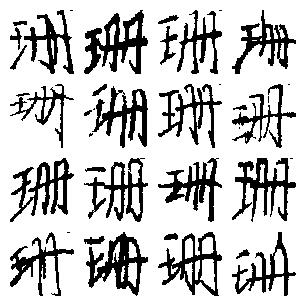 珊珊珊珊
珊珊珊珊
珊珊珊珊
珊珊珊珊